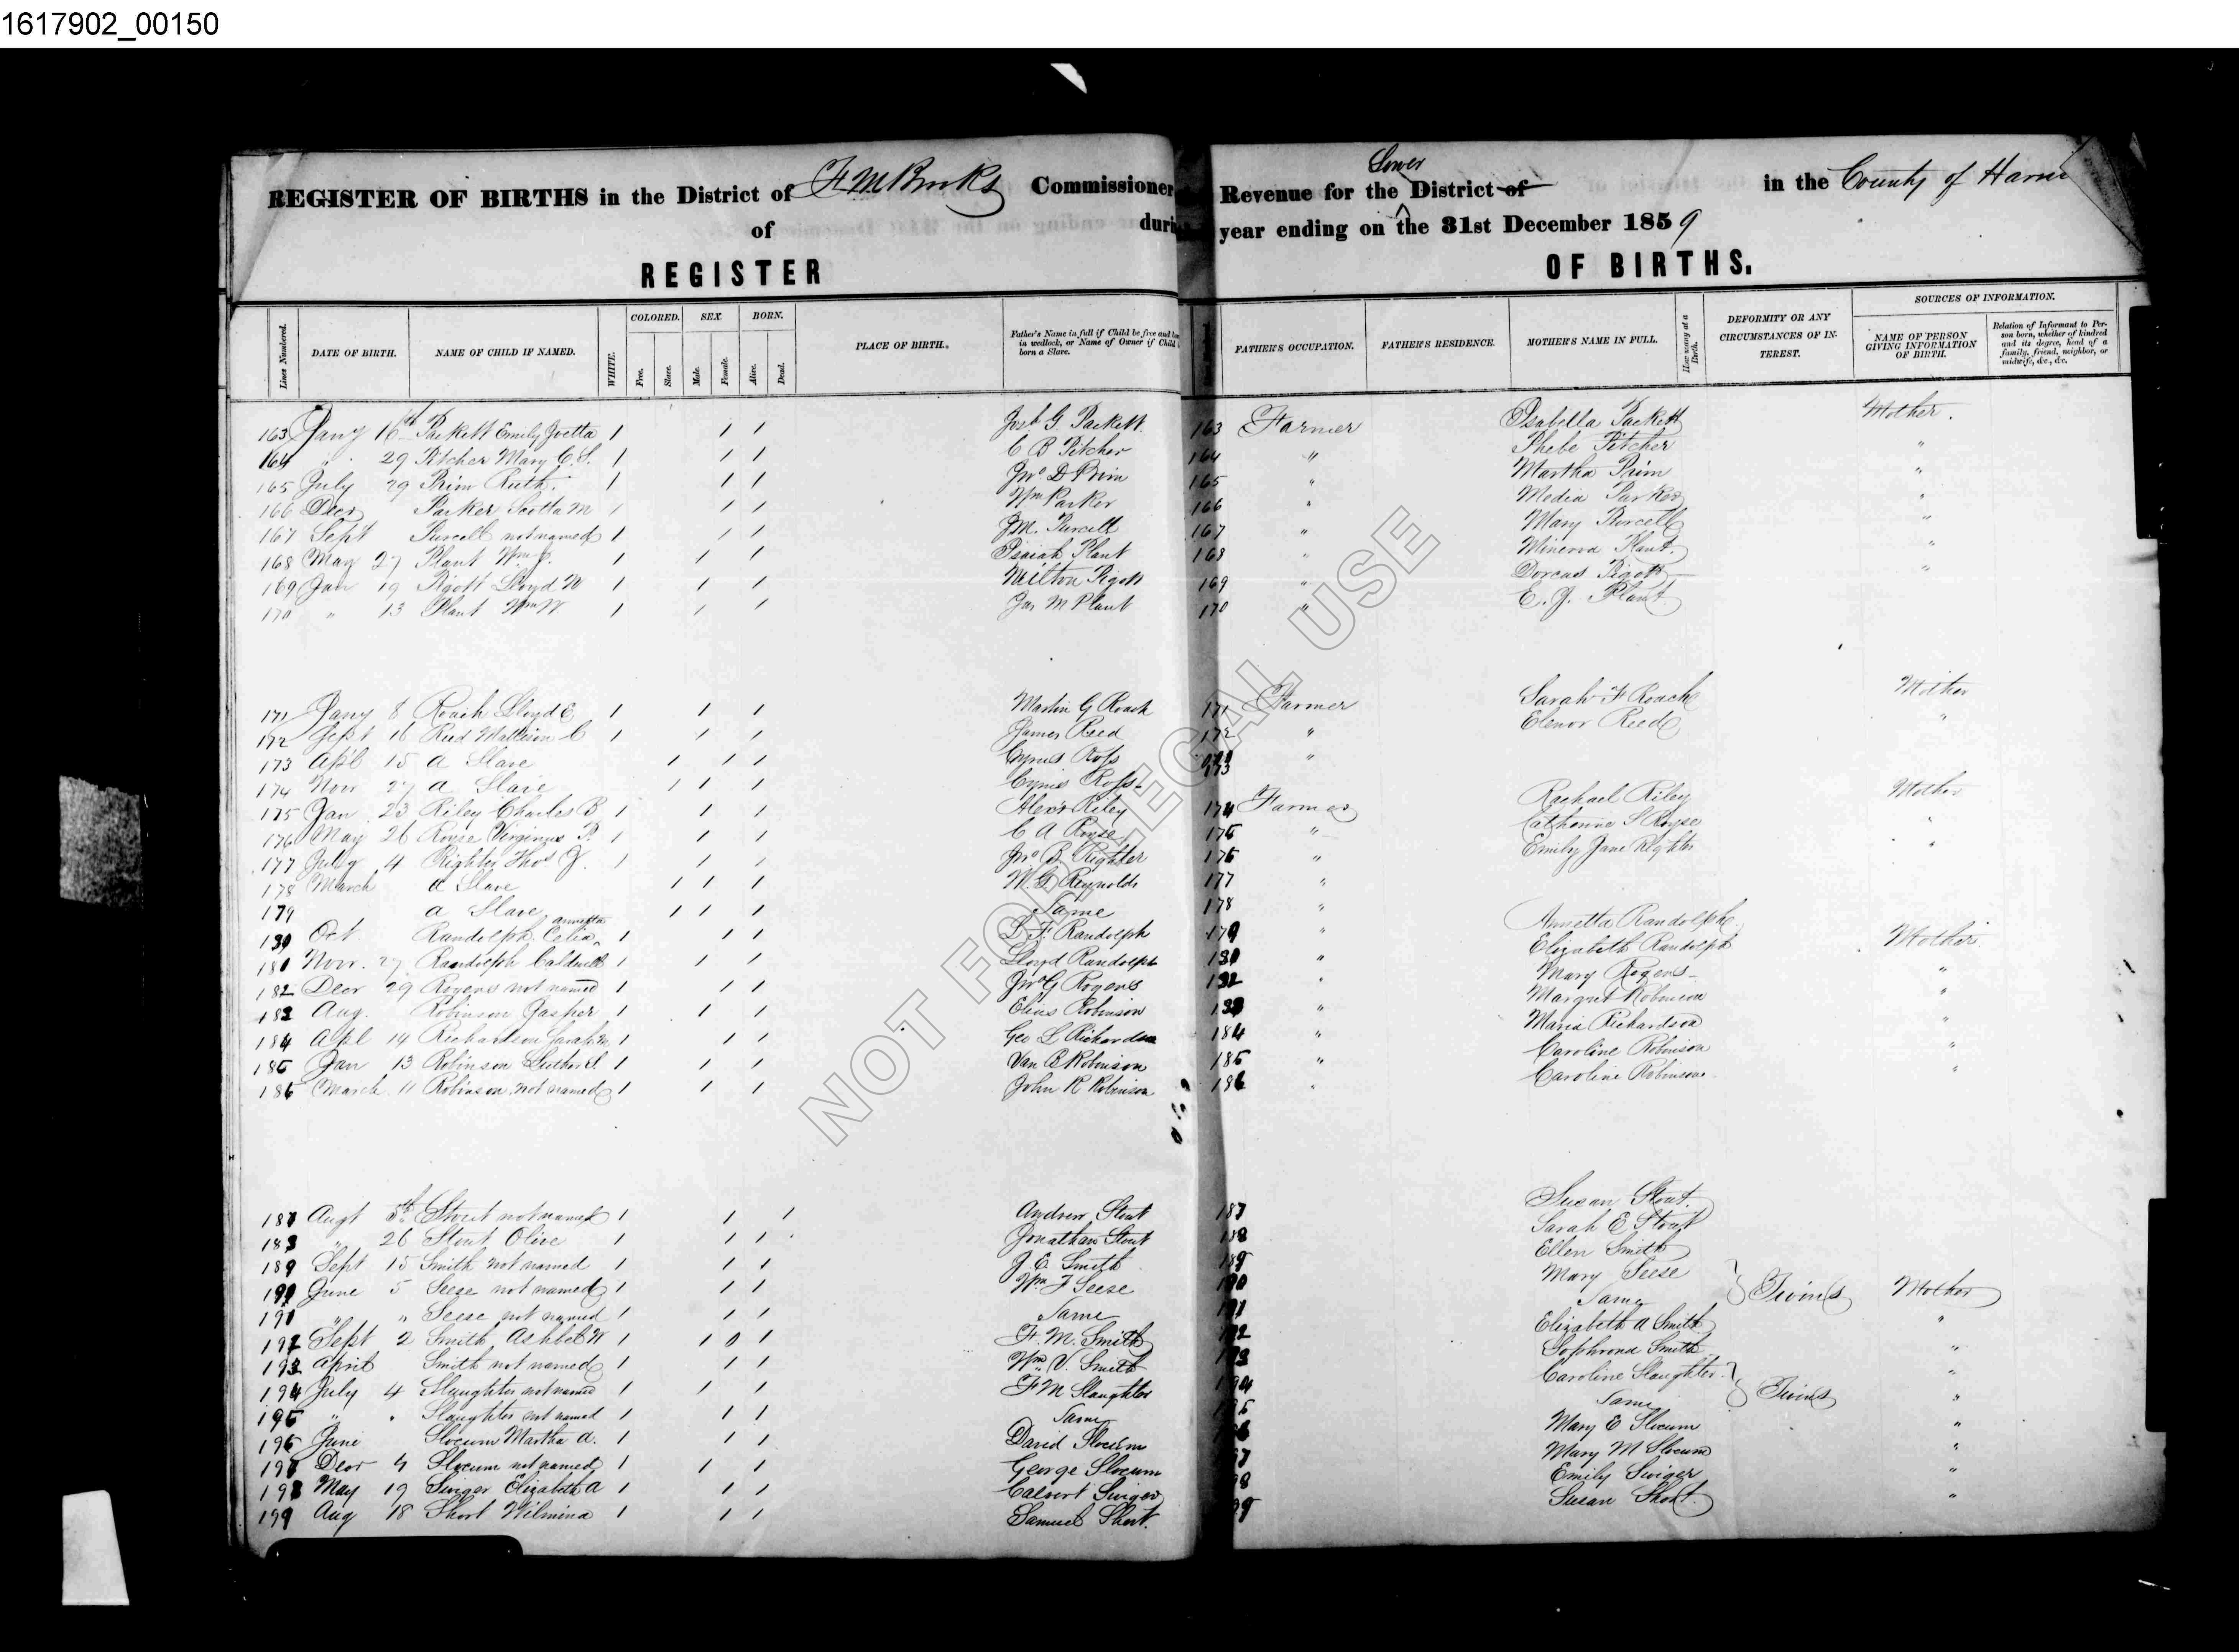 1617902_00150
REGISTER OF BIRTHS in the District of F M Brooks Commissioner
of durin
REGISTER
Revenue for the Lower District of in the County of Harri
year ending on the 31st December 1859
OF BIRTHS.
Lines Numbered. DATE OF BIRTH. NAME OF CHILD IF NAMED. WHITE. COLORED. Free. Slave. SEX. Male. Female. BORN. Alive. Dead. PLACE OF BIRTH. Father's Name in full if Child be free and bo in wedlock, or Name of Owner if Child born a Slave.
FATHER'S OCCUPATION. FATHER'S RESIDENCE. MOTHER'S NAME IN FULL. How many at a Birth. DEFORMITY OR ANY CIRCUMSTANCES OF INTEREST. SOURCES OF INFORMATION. NAME OF PERSON GIVING INFORMATION OF BIRTH. Relation of Informant to Person born, whether of kindred and its degree, head of a family, friend, neighbor, or midwife, &c., &c.
163 Jany 16th Packett Emily 1 1 1 Josh G. Packett 163 Farmer Isabella Packett Mother.
164 " 29 Pitcher Mary C. S. 1 1 1 C B Pitcher 164 " Phebe Pitcher "
165 July 29 Prim Ruth. 1 1 1 Jno D Prim 165 " Martha Prim "
166 Decr Parker M 1 1 1 Wm Parker 166 " Media Parker "
167 Sept Purcell not named 1 1 1 J M. Purcell 167 " Mary Purcell "
168 May 27 Plant Wm J. 1 1 1 Isaiah Plant 168 " Minerva Plant. "
169 Jan 19 Pigott Lloyd W 1 1 1 Milton Pigott 169 " Dorcas Pigott "
170 " 13 Plant Wm W. 1 1 1 Jas M Plant 170 " E. J. Plant
171 Jany 8 Roach Lloyd E 1 1 1 Martin G Roach 171 Farmer Sarah F Roach Mother
172 Sept 16 Reed Mattison C 1 1 1 James Reed 172 " Elenor Reed "
173 Apl 15 a Slave 1 1 1 Cyrus Ross 173 "
174 Novr 27 a Slave 1 1 1 Cyrus Ross
175 Jan 23 Riley Charles B 1 1 1 Alexr Riley 174 Farmer Rachael Riley Mother
176 May 26 Royse Virginus P. 1 1 1 C A Royse 175 " Catherine S Royse "
177 July 4 Righter Thos J. 1 1 1 Jno B. Righter 176 " Emily Jane Righter "
178 March a Slave 1 1 1 W. G. Reynolds 177 "
179 a Slave 1 1 1 Same 178 "
180 Oct. Randolph Celia annetta 1 1 1 L F Randolph 179 " Annetta Randolph
181 Novr. 27 Randolph Caldwell 1 1 1 Lloyd Randolph " Elizabeth Randolph Mother
182 Decr 29 Rogers not named 1 1 1 Jno G Rogers 182 " Mary Rogers "
183 Aug. Robinson Jasper 1 1 1 Elias Robinson 183 " Margret Robinson "
184 Apl 14 Richardson Sarah M 1 1 1 Geo L Richardson 184 " Maria Richardson "
185 Jan 13 Robinson Luther S. 1 1 1 Van B Robinson 185 " Caroline Robinson "
186 March 11 Robinson not named 1 1 1 John R Robinson 186 " Caroline Robinson "
187 Augt 5th Stout not named 1 1 1 Andrew Stout 187 Susan Stout.
188 " 26 Stout Olive 1 1 1 Jonathan Stout 188 Sarah E Stout
189 Sept 15 Smith not named 1 1 1 J. E. Smith 189 Ellen Smith
190 June 5 Seese not named 1 1 1 Wm F Seese 190 Mary Seese } Twins Mother
191 " " Seese not named 1 1 1 Same 191 Same
192 Sept 2 Smith Ashbel W 1 1 0 1 F. M. Smith 192 Elizabeth A Smith "
193 April Smith not named 1 1 1 Wm V. Smith 193 Sophrona Smith "
194 July 4 Slaughter not named 1 1 1 F M Slaughter 194 Caroline Slaughter } Twins "
195 " " Slaughter not named 1 1 1 Same Same "
196 June Slocum Martha A. 1 1 1 David Slocum Mary E Slocum "
197 Decr 4 Slocum not named 1 1 1 George Slocum Mary M Slocum "
198 May 19 Swiger Elizabeth A 1 1 1 Calvert Swiger Emily Swiger "
199 Aug 18 Short Wilmina 1 1 1 Samuel Short. Susan Short. "
NOT FOR LEGAL USE